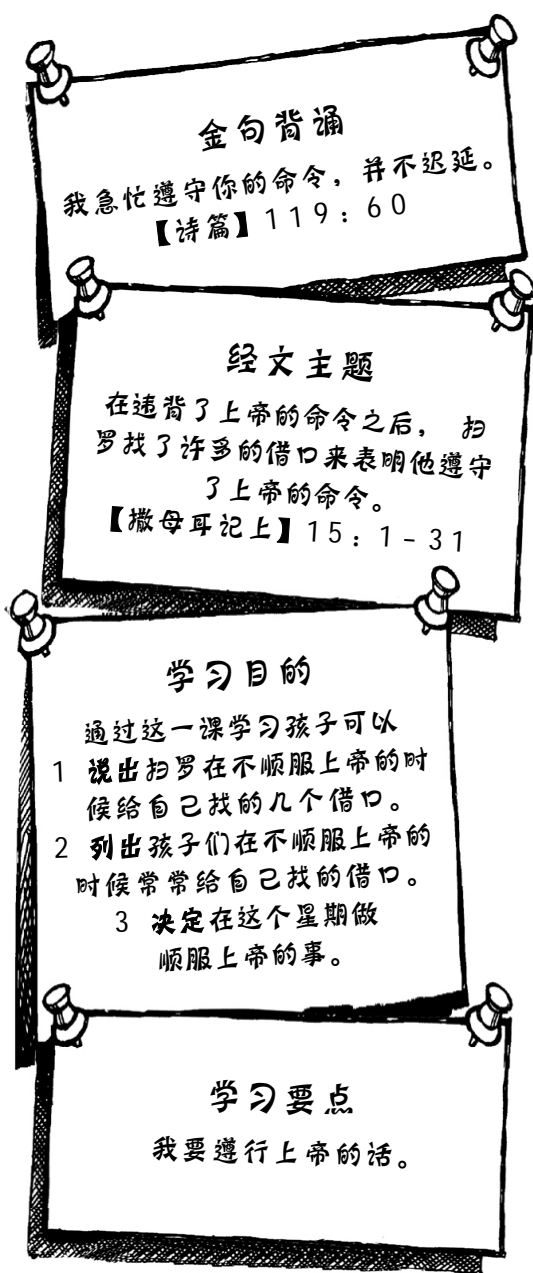 金句背诵
我急忙遵守你的命令，并不迟延。
【诗篇】119:60
经文主题
在违背了上帝的命令之后， 扫
罗找了许多的借口来表明他遵守
了上帝的命令。
【撒母耳记上】15:1-31
学习目的
通过这一课学习孩子可以
1 说出扫罗在不顺服上帝的时
候给自己找的几个借口。
2 列出孩子们在不顺服上帝的
时候常常给自己找的借口。
3 决定在这个星期做
顺服上帝的事。
学习要点
我要遵行上帝的话。